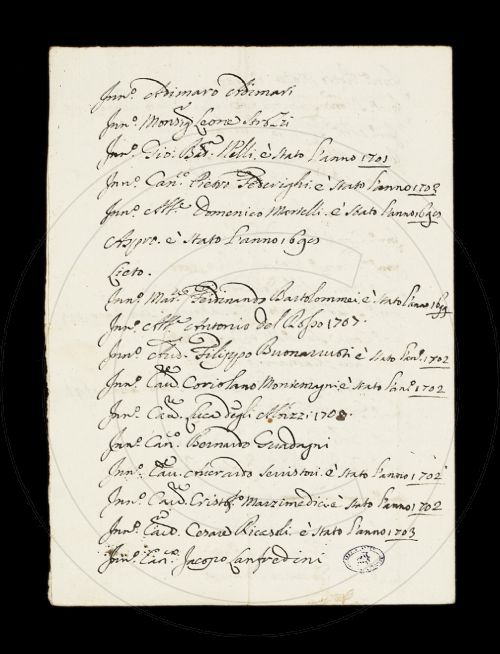 Inn.º Adimaro Adimari
Inn.º Monsig.r Leone Strozzi
Inn.º Gio: Bat.a Nelli. è Stato l'anno 1701
Inn.º Can.º Pietro Federighi. è Stato l'anno 1703
Inn.º Domenico Martelli. è Stato l'anno
Aspro. è Stato l'anno
Lieto.
Inn.º Mar. Ferdinando Bartolommei, è Stato l'anno 1699
Inn.º Ab. Antonio del Rosso 1707.
Inn.º Aud. Filippo Buonarruoti è Stato l'an.º 1702
Inn.º Cav. Coriolano Montemagni, è Stato l'an.º 1702
Inn.º Cav. Luca degli Albizzi. 1708.
Inn.º Can.º Bernardo Guadagni
Inn.º Cav. Averardo Serristori. è Stato l'anno 1702
Inn.º Cav. Cristof.º Marzimedici è Stato l'anno 1702
Inn.º Cav. Cesare Ricasoli. è Stato l'anno 1703
Inn.º Can. Jacopo Lanfredini